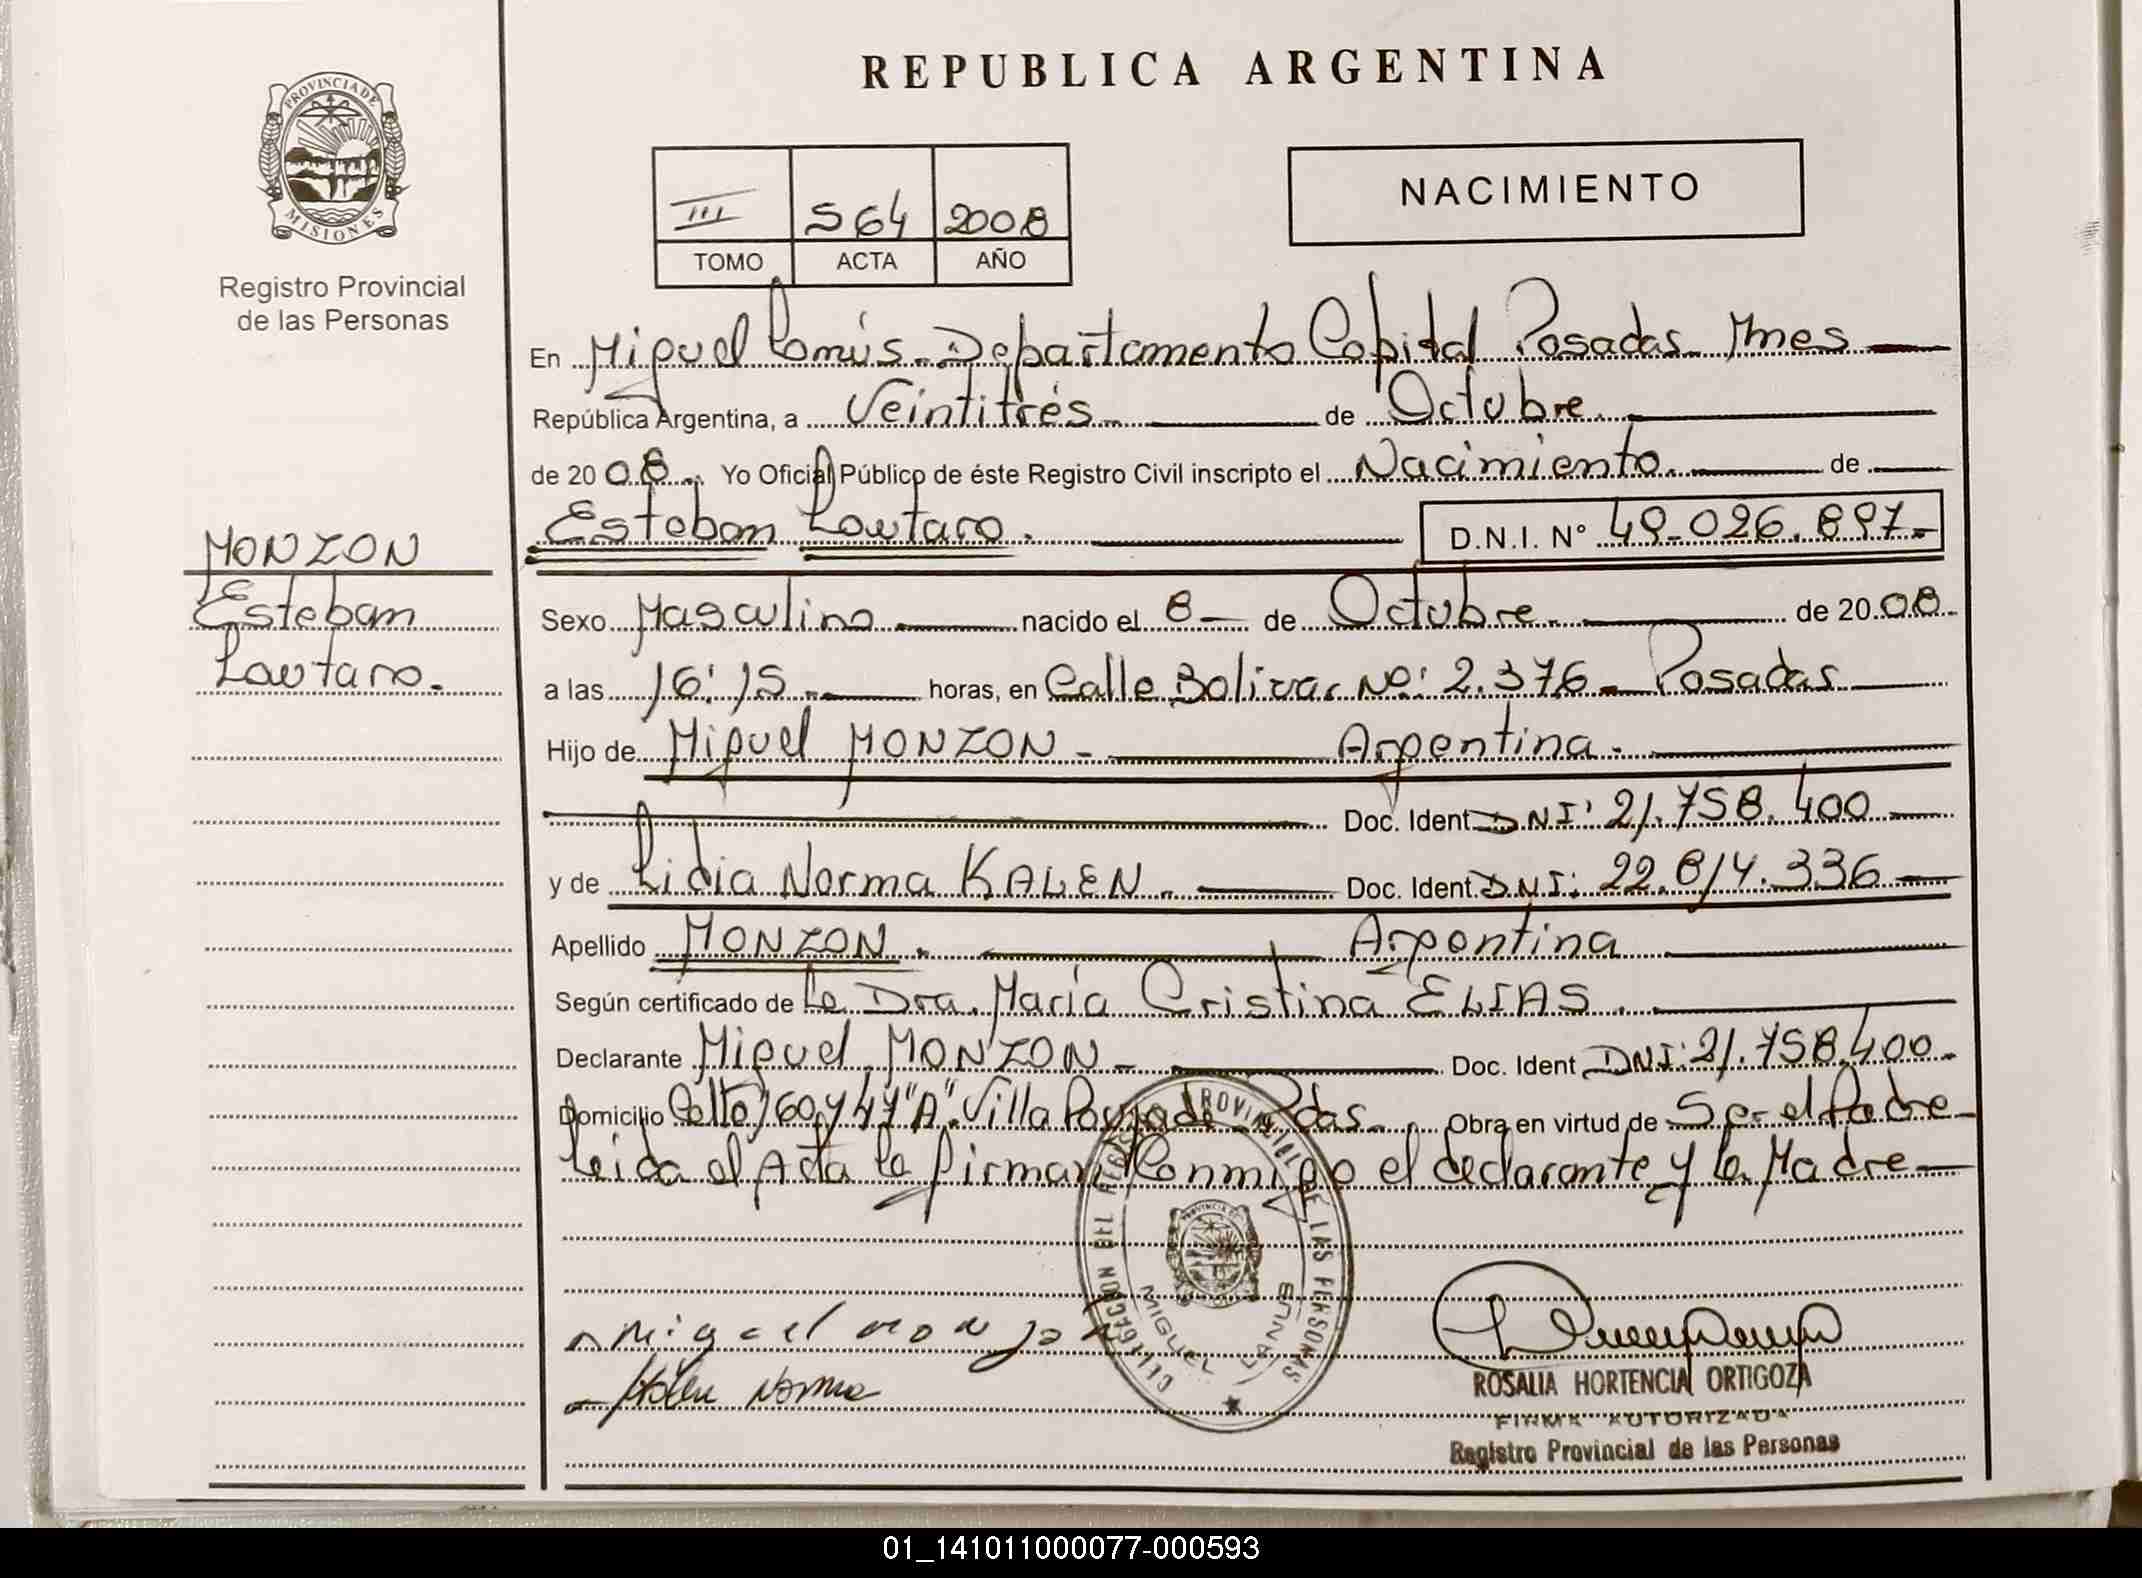 REPUBLICA ARGENTINA
PROVINCIA DE
MISIONES
Registro Provincial
de las Personas
III S64 2008
TOMO ACTA AÑO
NACIMIENTO
En Miguel Lanús. Departamento Capital Posadas Mnes
República Argentina, a Veintitrés de Octubre.
de 20 08. Yo Oficial Público de éste Registro Civil inscripto el Nacimiento. de
Esteban Lautaro. D.N.I. Nº 49.026.897.-
MONZON
Esteban
Lautaro.
Sexo Masculino nacido el 8 de Octubre. de 20 08
a las 16:15 horas, en Calle Bolivar Nº: 2.376 - Posadas
Hijo de Miguel MONZON - Argentina.
Doc. Ident D.N.I: 21.758.400
y de Lidia Norma KALEN. Doc. Ident. D.N.I: 22.814.336
Apellido MONZON. Argentina
Según certificado de La Dra. María Cristina ELIAS.
Declarante Miguel MONZON - Doc. Ident DNI: 21.758.400-
Domicilio 160 y 47 "A". Villa Pdas. Obra en virtud de Ser el Padre
Leida el Acta la firman Conmigo el declarante y la Madre
DELEGACION DEL REGISTRO PROVINCIAL DE LAS PERSONAS
PROVINCIA DE
MIGUEL LANUS
Miguel monzon
Kalen Norma
ROSALIA HORTENCIA ORTIGOZA
FIRMA AUTORIZADA
Registro Provincial de las Personas
01_141011000077-000593